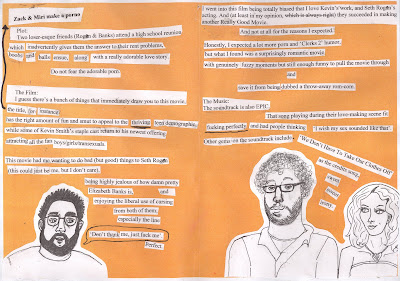 Zack & Miri make a porno
Plot:
Two loser-esque friends (Rogen & Banks) attend a high school reunion,
which inadvertently gives them the answer to their rent problems,
boobs and balls ensue, along with a really adorable love story.
Do not fear the adorable porn.
The Film:
I guess there's a bunch of things that immediately draw you to this movie.
the title, for instance,
has the right amount of fun and smut to appeal to the thriving teen demographic,
while some of Kevin Smith's staple cast return to his newest offering
attracting all the fan boys/girls/transexuals.
This movie had me wanting to do bad (but good) things to Seth Rogen
(this could just be me, but I don't care),
being highly jealous of how damn pretty
Elizabeth Banks is, and
enjoying the liberal use of cursing
from both of them,
especially the line
'Don't thank me, just fuck me'.
Perfect
I went into this film being totally biased that I love Kevin's work, and Seth Rogen's
acting. And (at least in my opinion, which is always right) they succeeded in making
another Really Good Movie.
And not at all for the reasons I expected.
Honestly, I expected a lot more porn and 'Clerks 2' humor,
but what I found was a surprisingly romantic movie
with genuinely fuzzy moments but still enough funny to pull the movie through
and
save it from being dubbed a throw-away rom-com
The Music:
The soundtrack is also EPIC
That song playing during their love-making scene fit
fucking perfectly and had people thinking 'I wish my sex sounded like that'.
Other gems on the soundtrack include
'We Don't Have To Take Our Clothes Off'
as the credits song,